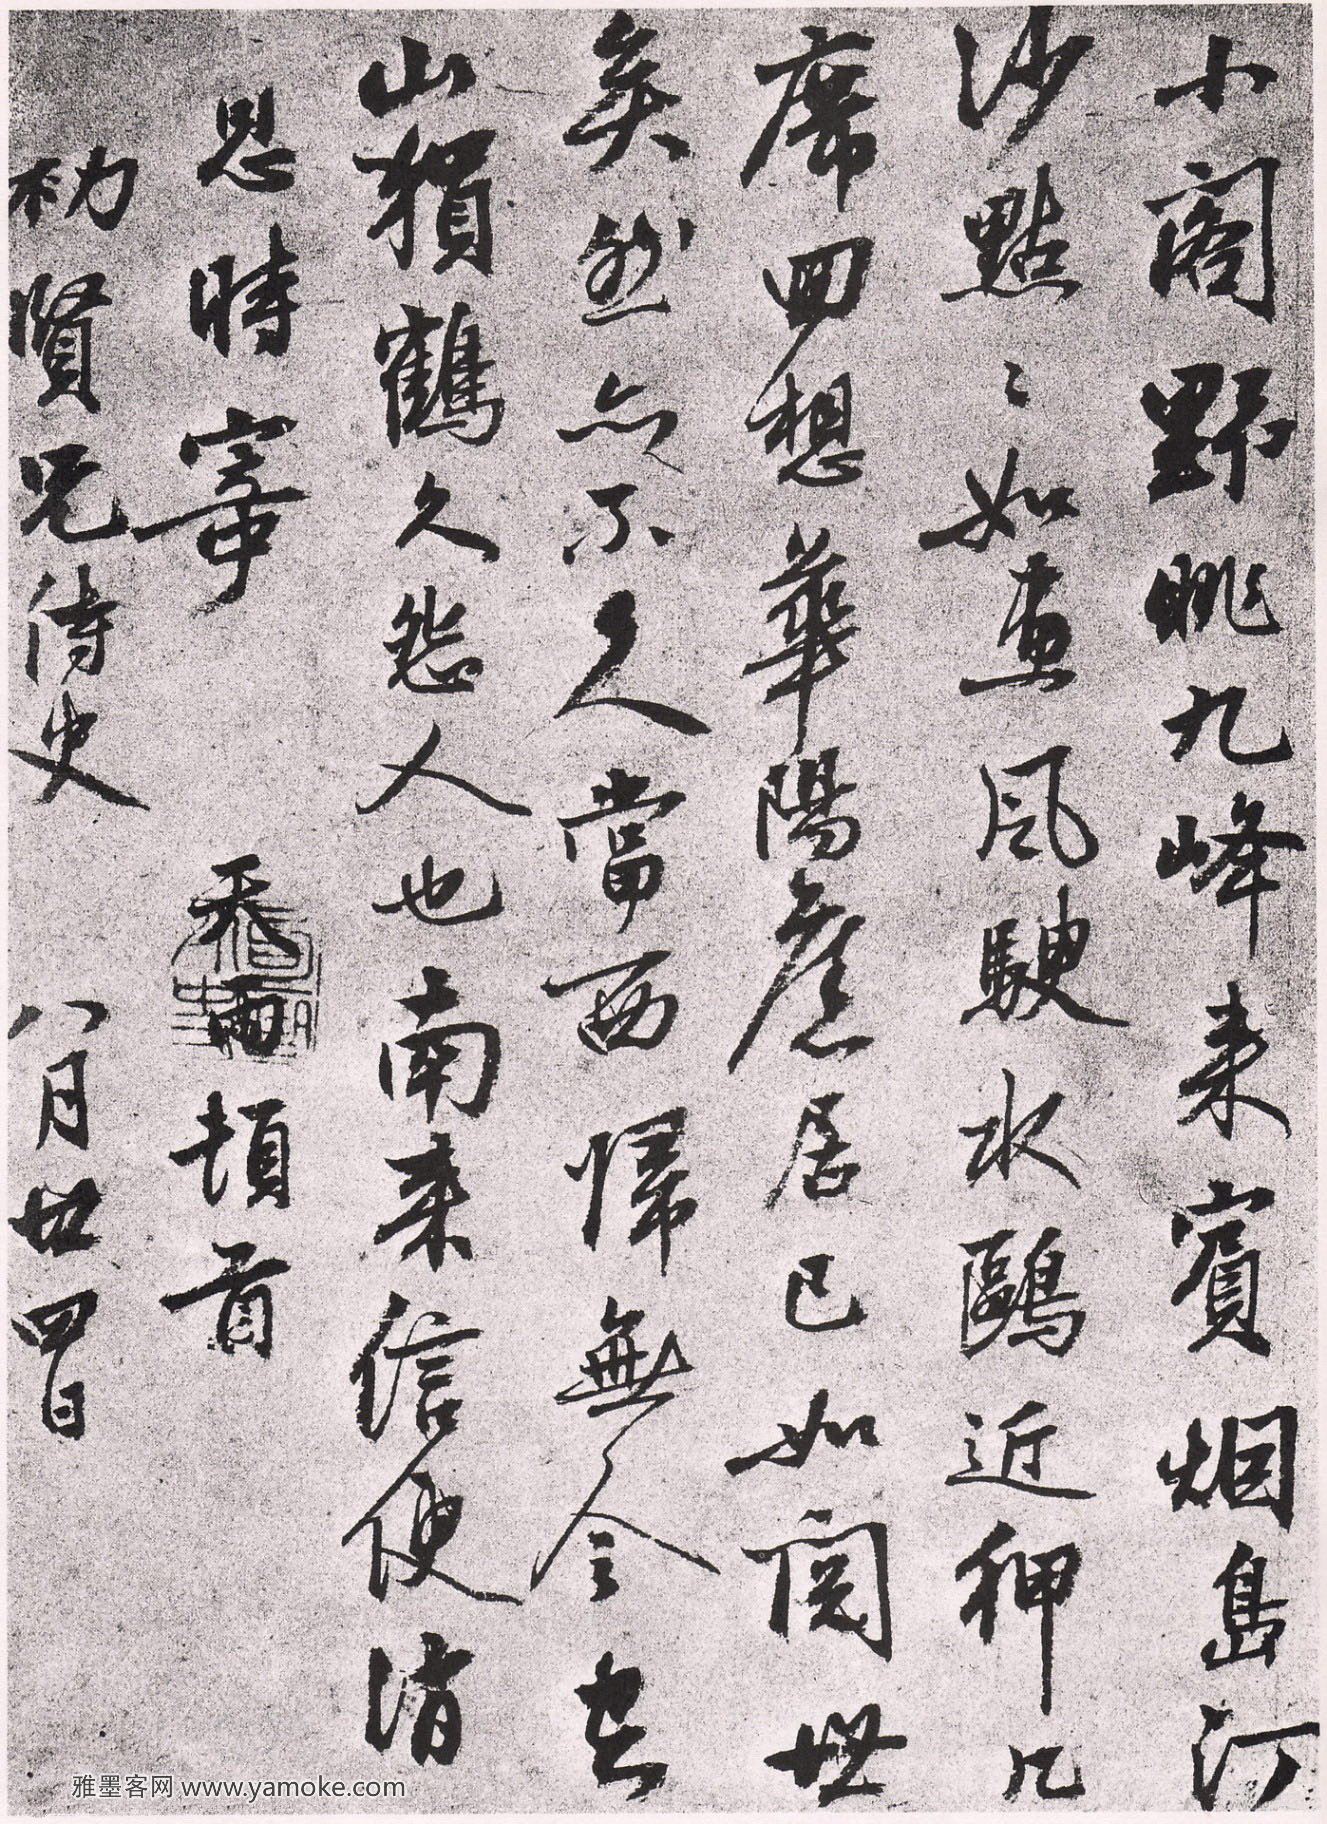 小閣野眺九峰来賓烟島汀
沙點〻如畫風駛水鷗近狎几
席回想華陽舊居已如閱世
矣然亦不久當西歸無令空
山猿鶴久怨人也南来信便消
息時寄 天雨頓首
初賢兄侍史 八月廿四日
雅墨客网 www.yamoke.com